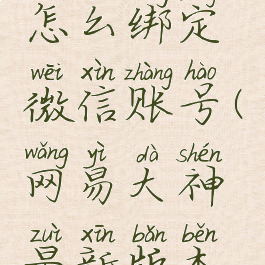 怎么绑定
wēi xìn zhàng hào
微信账号(
wǎng yì dà shén
网易大神
zuì xīn bǎn běn
最新版本